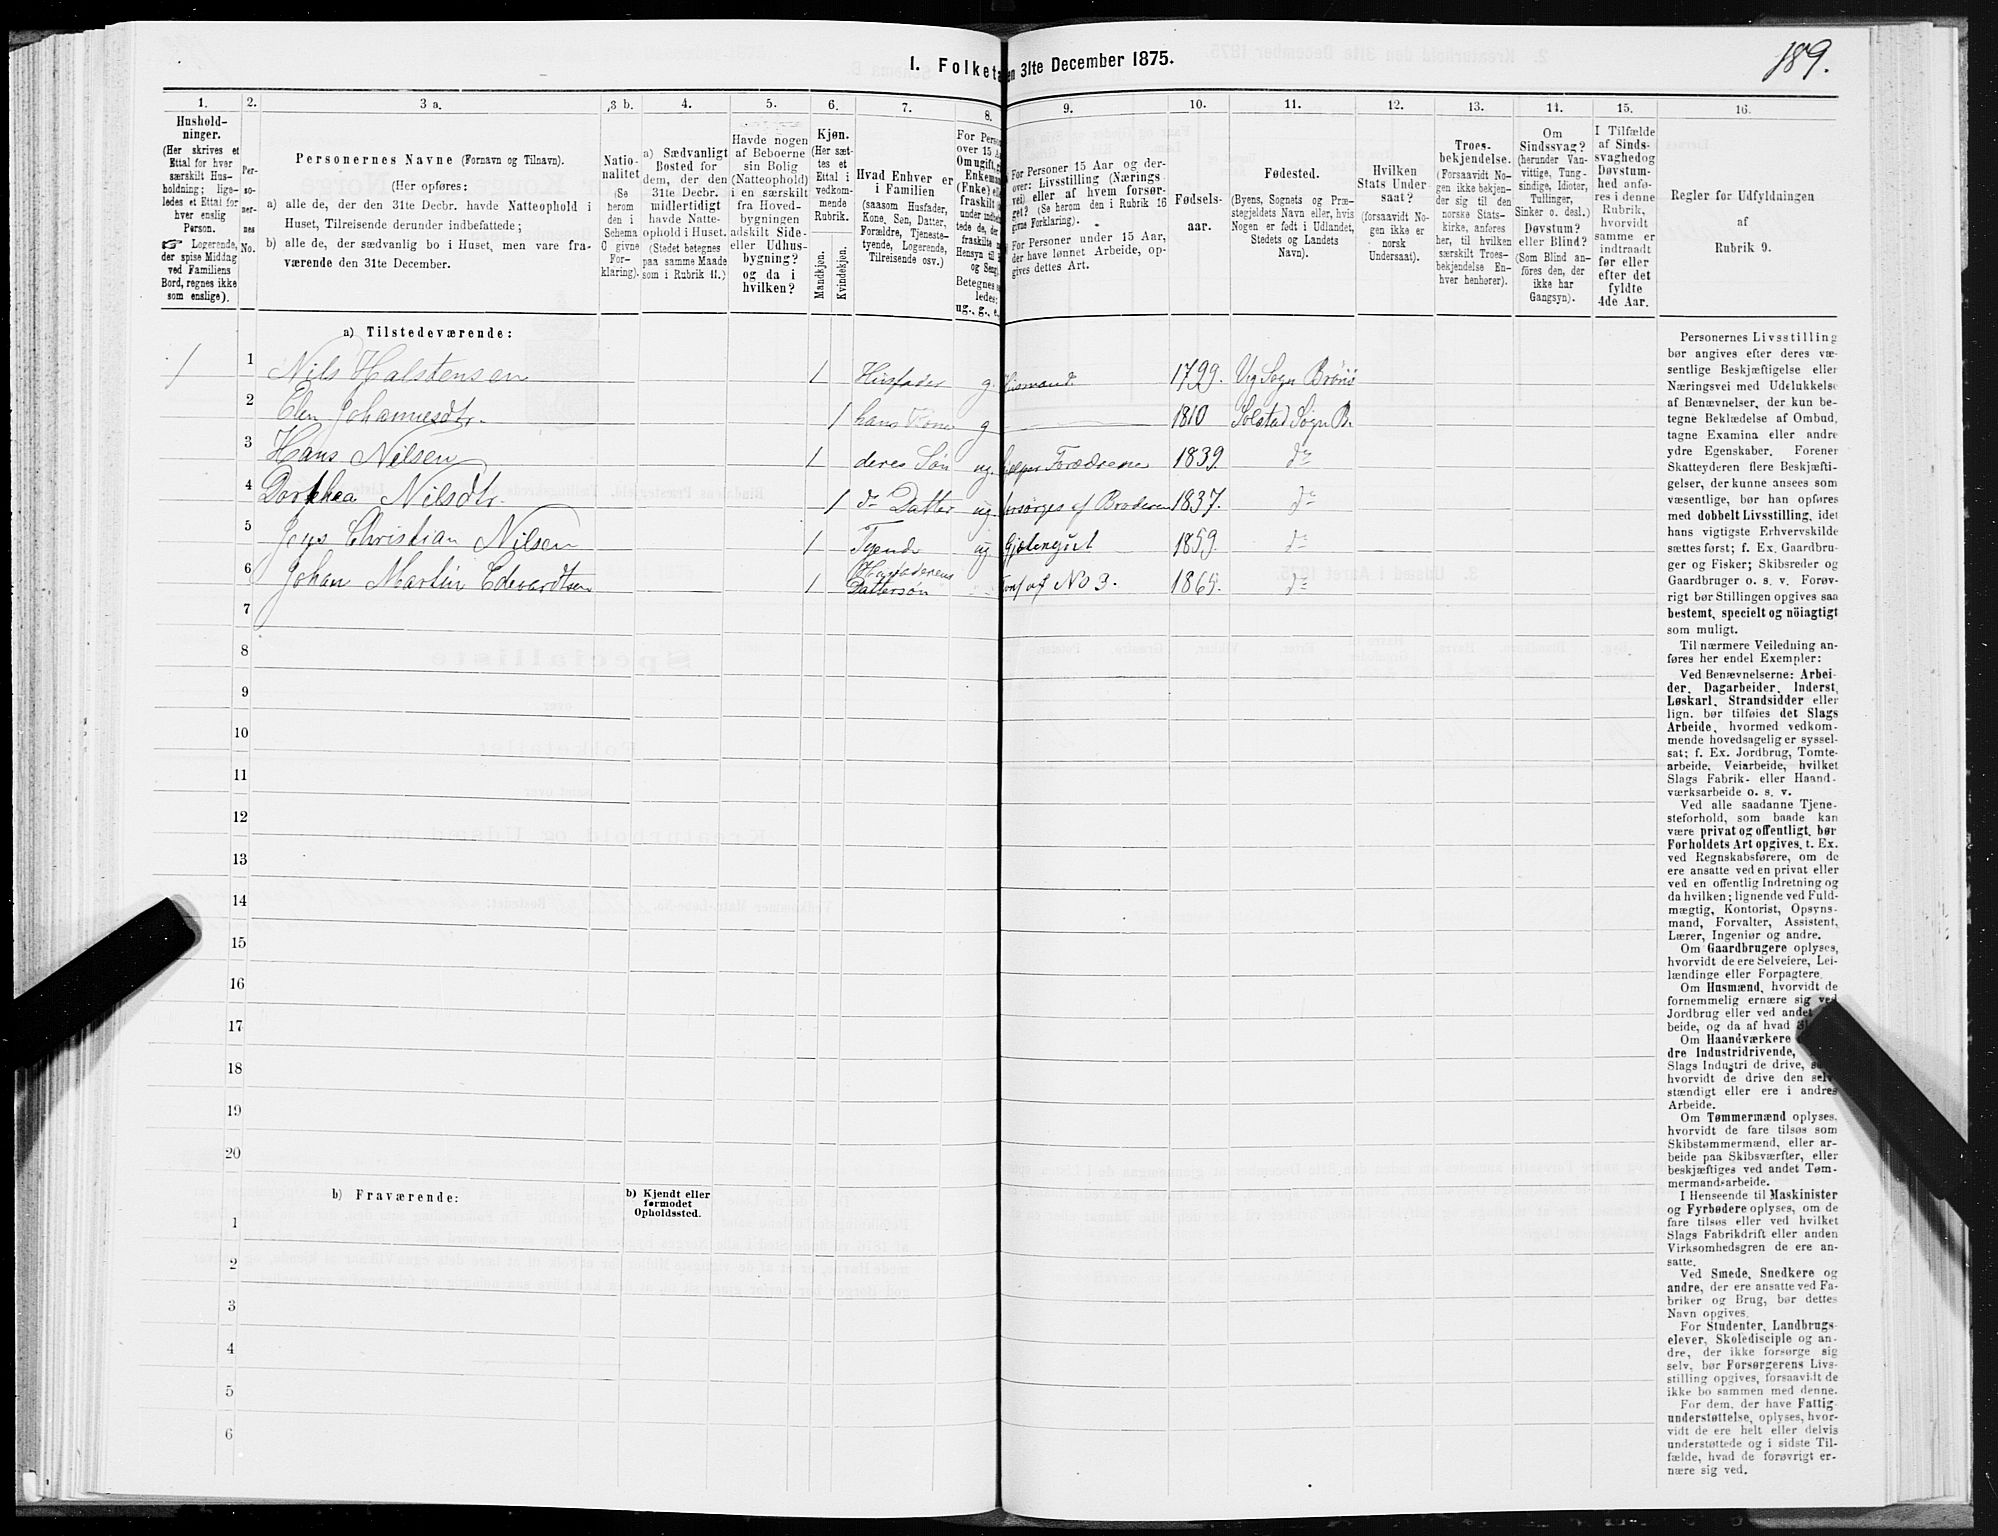 189.
I. Folketa en 31te December 1875.
1. 2. 3 a. 3 b. 4. 5. 6. 7. 8. 9. 10. 11. 12. 13. 14. 15. 16.
Hushold-
ninger.
(Her skrives et
Ettal for hver
særskilt Hus-
holdning; lige-
ledes et Ettal for
hver enslig
Person.
☞ Logerende,
der spise Middag
ved Familiens
Bord, regnes ikke
som enslige).
Per-
so-
ner-
nes
No.
Personernes Navne (Fornavn og Tilnavn).
(Her opføres:
a) alle de, der den 31te Decbr. havde Natteophold i
Huset, Tilreisende derunder indbefattede;
b) alle de, der sædvanlig bo i Huset, men vare fra-
værende den 31te December.
Natio-
nalitet
(Se
herom
den i
Schema
C givne
For-
klaring).
a) Sædvanligt
Bosted for
dem, der den
31te Decbr.
midlertidigt
havde Natte-
ophold i Huset.
(Stedet betegnes
paa samme Maade
som i Rubrik 11.)
Havde nogen
af Beboerne
sin Bolig
(Natteophold)
i en særskilt
fra Hoved-
bygningen
adskilt Side-
eller Udhus-
bygning?
og da i
hvilken?
Kjøn.
(Her sæt-
tes et
Ettal i
vedkom-
mende
Rubrik.
Mandkjøn.
Kvindekjøn.
Hvad Enhver er
i Familien
(saasom Husfader,
Kone, Søn, Datter,
Forældre, Tjeneste-
tyende, Logerende,
Tilreisende osv.)
For Perso
over 15 A
Om ugift, g
Enkema
(Fnke) el
fraskilt
under indbe
tede de, der
fraskilte
Hensyn til
og Seng.
Betegnes s
ledes:
ug., g., e.,
For Personer 15 Aar og der-
over: Livsstilling (Nærings
vei) eller af hvem forsør-
get? (Se herom den i Rubrik 16
givne Forklaring).
For Personer under 15 Aar,
der have lønnet Arbeide, op-
gives dettes Art.
Fødsels-
aar.
Fødested.
(Byens, Sognets og Præ-
stegjeldets Navn eller, hvis
Nogen er født i Udlandet,
Stedets og Landets
Navn).
Hvilken
Stats Under
saat?
(forsaavidt No-
gen ikke er
norsk
Undersaat).
Troes-
bekjendelse.
(Forsaavidt No-
gen ikke bekjen-
der sig til den
norske Stats-
kirke, anføres
her, til hvilken
særskilt Troes-
bekjendelse En-
hver henhører).
Om
Sindssvag?
(herunder Van-
vittige, Tung-
sindige, Idioter,
Tullinger,
Sinker o. desl.)
Døvstum?
eller Blind?
(Som Blind an-
føres den, der
ikke har
Gangsyn).
I Tilfælde
af Sinds-
svaghed og
Døvstum-
hed anfø-
res i denne
Rubrik,
hvorvidt
samme er
indtraadt
før eller
efter det
fyldte
4de Aar.
Regler for Udfyldningen
af
Rubrik 9.
a) Tilstedeværende:
1 1 Nils Halstensen 1 Husfader g. Husmand. 1799. Veg Sogn Brønø
2 Elen Johannesdtr. 1 hans Kone g 1810 Solstad Sogn B.
3 Hans Nilsen 1 deres Søn ug. hjelper Forældrene 1839. do
4 Dorthea Nilsdtr. 1 do Datter ug. forsørges af Broderen 1837. do
5 Jens Christian Nilsen 1 Tyende ug Gjætergut 1859. do
6 Johan Martin Edvardtsen 1 Husfaderens
Dattersøn fors. af No 3. 1865. do
7
8
9
10
11
12
13
14
15
16
17
18
19
20
b) Fraværende:
b) Kjendt eller
formodet
Opholdssted.
1
2
3
4
5
6
Personernes Livsstilling
bør angives efter deres væ-
sentlige Beskjæftigelse eller
Næringsvei med Udelukkelse
af Benævnelser, der kun be-
tegne Beklædelse af Ombud,
tagne Examina eller andre
ydre Egenskaber. Forener
Skatteyderen flere Beskjæfti-
gelser, der kunne ansees som
væsentlige, bør han opføres
med dobbelt Livsstilling, idet
hans vigtigste Erhvervskilde
sættes først; f. Ex. Gaardbru-
ger og Fisker; Skibsreder og
Gaardbruger o. s. v. Forøv-
rigt bør Stillingen opgives saa
bestemt, specielt og nöiagtigt
som muligt.
Til nærmere Veiledning an-
føres her endel Exempler:
Ved Benævnelserne: Arbei-
der, Dagarbeider, Inderst,
Løskarl, Strandsidder eller
lign. bør tilføies det Slags
Arbeide, hvormed vedkom-
mende hovedsagelig er syssel-
sat; f. Ex. Jordbrug, Tomte-
arbeide, Veiarbeide, hvilket
Slags Fabrik- eller Haand-
værksarbeide o. s. v.
Ved alle saadanne Tjene-
steforhold, som baade kan
være privat og offentligt, bør
Forholdets Art opgives, t. Ex.
ved Regnskabsførere, om de
ere ansatte ved en privat eller
ved en offentlig Indretning og
da hvilken; lignende ved Fuld-
mægtig, Kontorist, Opsyns-
mand, Forvalter, Assistent,
Lærer, Ingeniør og andre.
Om Gaardbrugere oplyses,
hvorvidt de ere Selveiere, Lei-
lændinge eller Forpagtere.
Om Husmænd, hvorvidt de
fornemmelig ernære sig ved
Jordbrug eller ved andet
beide, og da af hvad
Om Haandværkere
dre Industridrivende,
Slags Industri de drive,
hvorvidt de drive den selv-
stændigt eller ere i andres
Arbeide.
Om Tømmermænd oplyses,
hvorvidt de fare tilsøs som
Skibstømmermænd, eller ar-
beide paa Skibsværfter, eller
beskjæftiges ved andet Tøm-
mermandsarbeide.
I Henseende til Maskinister
og Fyrbødere oplyses, om de
fare tilsøs eller ved hvilket
Slags Fabrikdrift eller anden
Virksomhedsgren de ere an-
satte.
Ved Smede, Snedkere og
andre, der ere ansatte ved Fa-
briker og Brug, bør dettes
Navn opgives.
For Studenter, Landbrugs-
elever, Skoledisciple og an-
dre, der ikke forsørge sig
selv, bør Forsørgerens Livs-
stilling opgives, forsaavidt de
ikke bo sammen med denne.
For dem, der have Fattig-
understøttelse, oplyses, hvor-
vidt de ere helt eller delvis
understøttede og i sidste Til-
fælde, hvad de forøvrigt er-
nære sig ved.